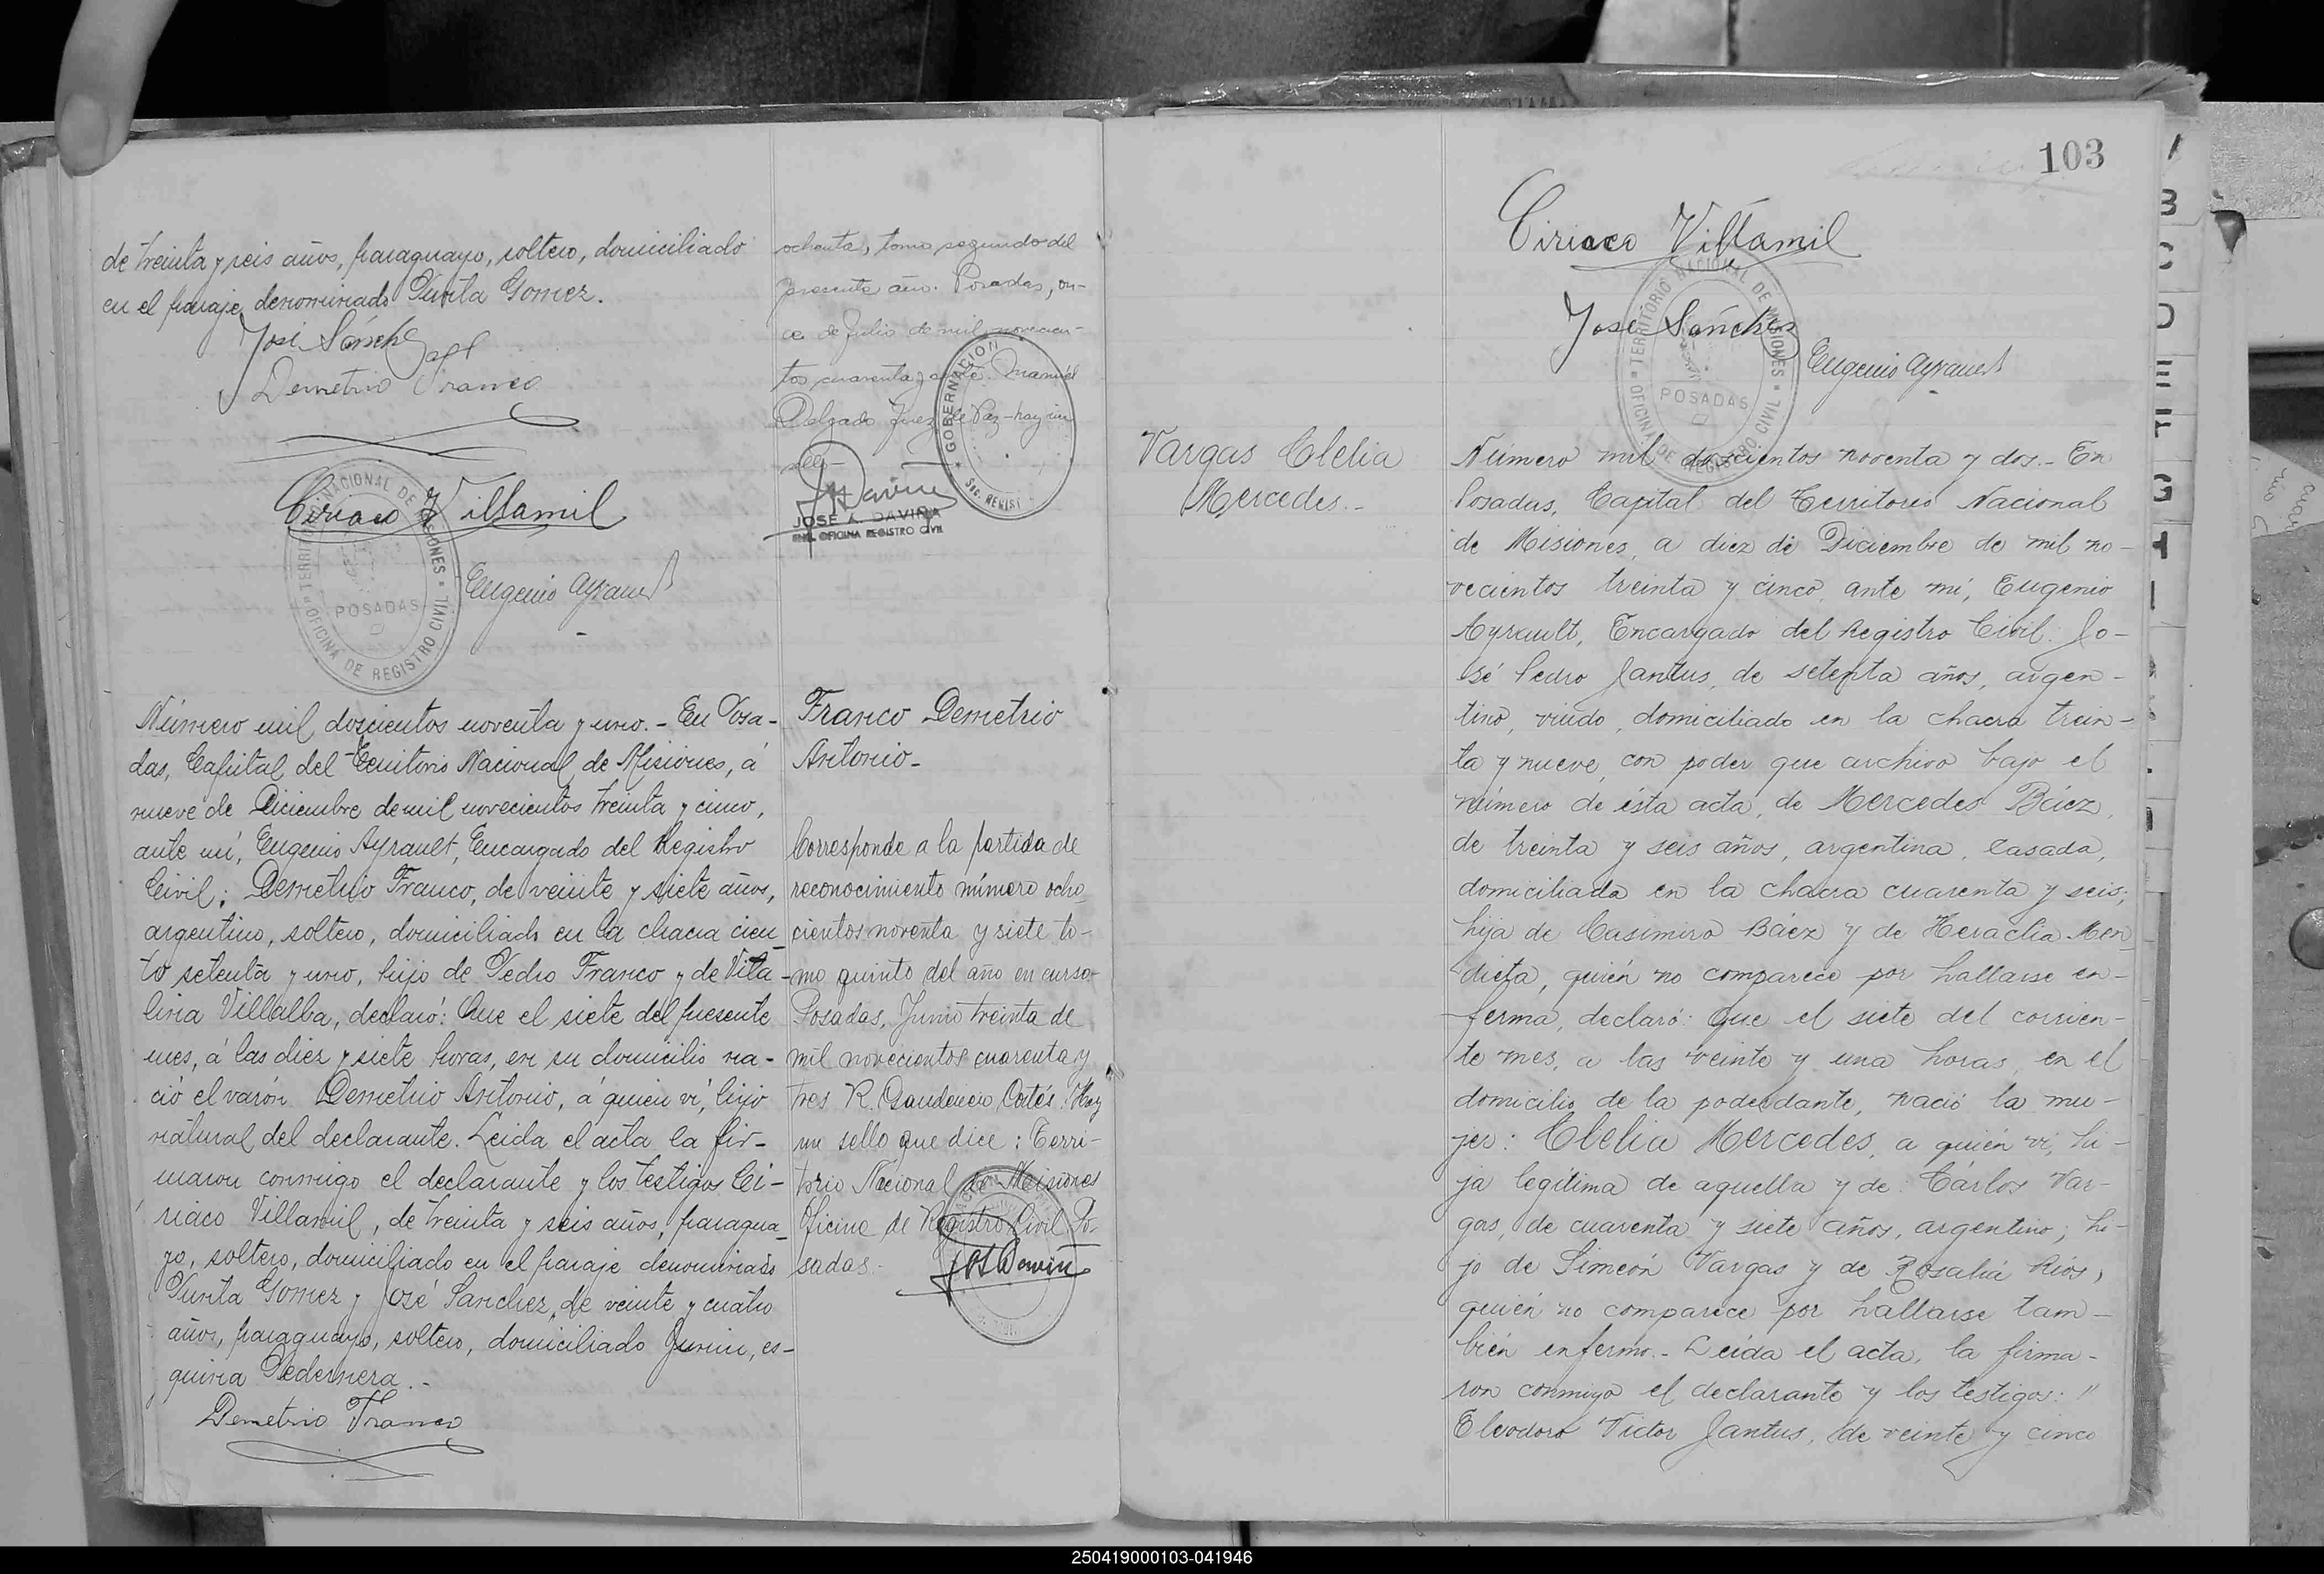 de treinta y seis años, paraguayo, soltero, domiciliado
en el paraje denominado Punta Gomez.
José Sánchez
Demetrio Franco
Ciriaco Villamil
Eugenio Ayrault
TERRITORIO NACIONAL DE MISIONES
OFICINA DE REGISTRO CIVIL
POSADAS
ochenta, tomo segundo del
presente año. Posadas, on-
ce de Julio de mil novecien-
tos cuarenta y siete. Manuel
Delgado Juez de Paz - hay un
sello -
GOBERNACION
JOSE A. DAVIÑA
ENC. OFICINA REGISTRO CIVIL
Número mil doscientos noventa y uno. - En Posa-
das, Capital del Territorio Nacional de Misiones, á
nueve de Diciembre de mil novecientos treinta y cinco,
ante mí, Eugenio Ayrault, Encargado del Registro
Civil; Demetrio Franco, de veinte y siete años,
argentino, soltero, domiciliado en la chacra cien-
to setenta y uno, hijo de Pedro Franco y de Vita-
lina Villalba, declaró: Que el siete del presente
mes, á las diez y siete horas, en su domicilio na-
ció el varón Demetrio Antonio, á quien ví, hijo
natural del declarante. Leida el acta la fir-
maron conmigo el declarante y los testigos Ci-
riaco Villamil, de treinta y seis años, paragua-
yo, soltero, domiciliado en el paraje denominado
Punta Gomez y José Sanchez, de veinte y cuatro
años, paraguayo, soltero, domiciliado Junin, es-
quina Pedernera. -
Demetrio Franco
Franco Demetrio
Antonio -
Corresponde a la partida de
reconocimiento número ocho
cientos noventa y siete to-
mo quinto del año en curso -
Posadas, Junio treinta de
mil novecientos cuarenta y
tres R. Gaudencio Cortés. Hay
un sello que dice: Terri-
torio Nacional de Misiones
Oficina de Registro Civil Po-
sadas. -
103
Ciriaco Villamil
José Sánchez
Eugenio Ayrault
TERRITORIO NACIONAL DE MISIONES
OFICINA DE REGISTRO CIVIL
POSADAS
Vargas Clelia
Mercedes. -
Número mil doscientos noventa y dos. - En
Posadas, Capital del Territorio Nacional
de Misiones, a diez de Diciembre de mil no-
vecientos treinta y cinco, ante mí, Eugenio
Ayrault, Encargado del Registro Civil: Jo-
sé Pedro Jantus, de setenta años, argen-
tino, viudo, domiciliado en la chacra trein-
ta y nueve, con poder que archivo bajo el
número de ésta acta, de Mercedes Báez,
de treinta y seis años, argentina, casada,
domiciliada en la chacra cuarenta y seis;
hija de Casimiro Báez y de Heraclia Men
dieta, quién no comparece por hallarse en-
ferma, declaró: Que el siete del corrien-
te mes, a las veinte y una horas, en el
domicilio de la poderdante, nació la mu-
jer: Clelia Mercedes, a quién ví, hi-
ja legítima de aquella y de Cárlos Var-
gas, de cuarenta y siete años, argentino; hi-
jo de Simeón Vargas y de Rosalía Ríos,
quién no comparece por hallarse tam-
bién enfermo. - Leída el acta, la firma-
ron conmigo el declarante y los testigos: "
Eleodoro Victor Jantus, de veinte y cinco
B
C
D
E
F
G
H
I
250419000103-041946